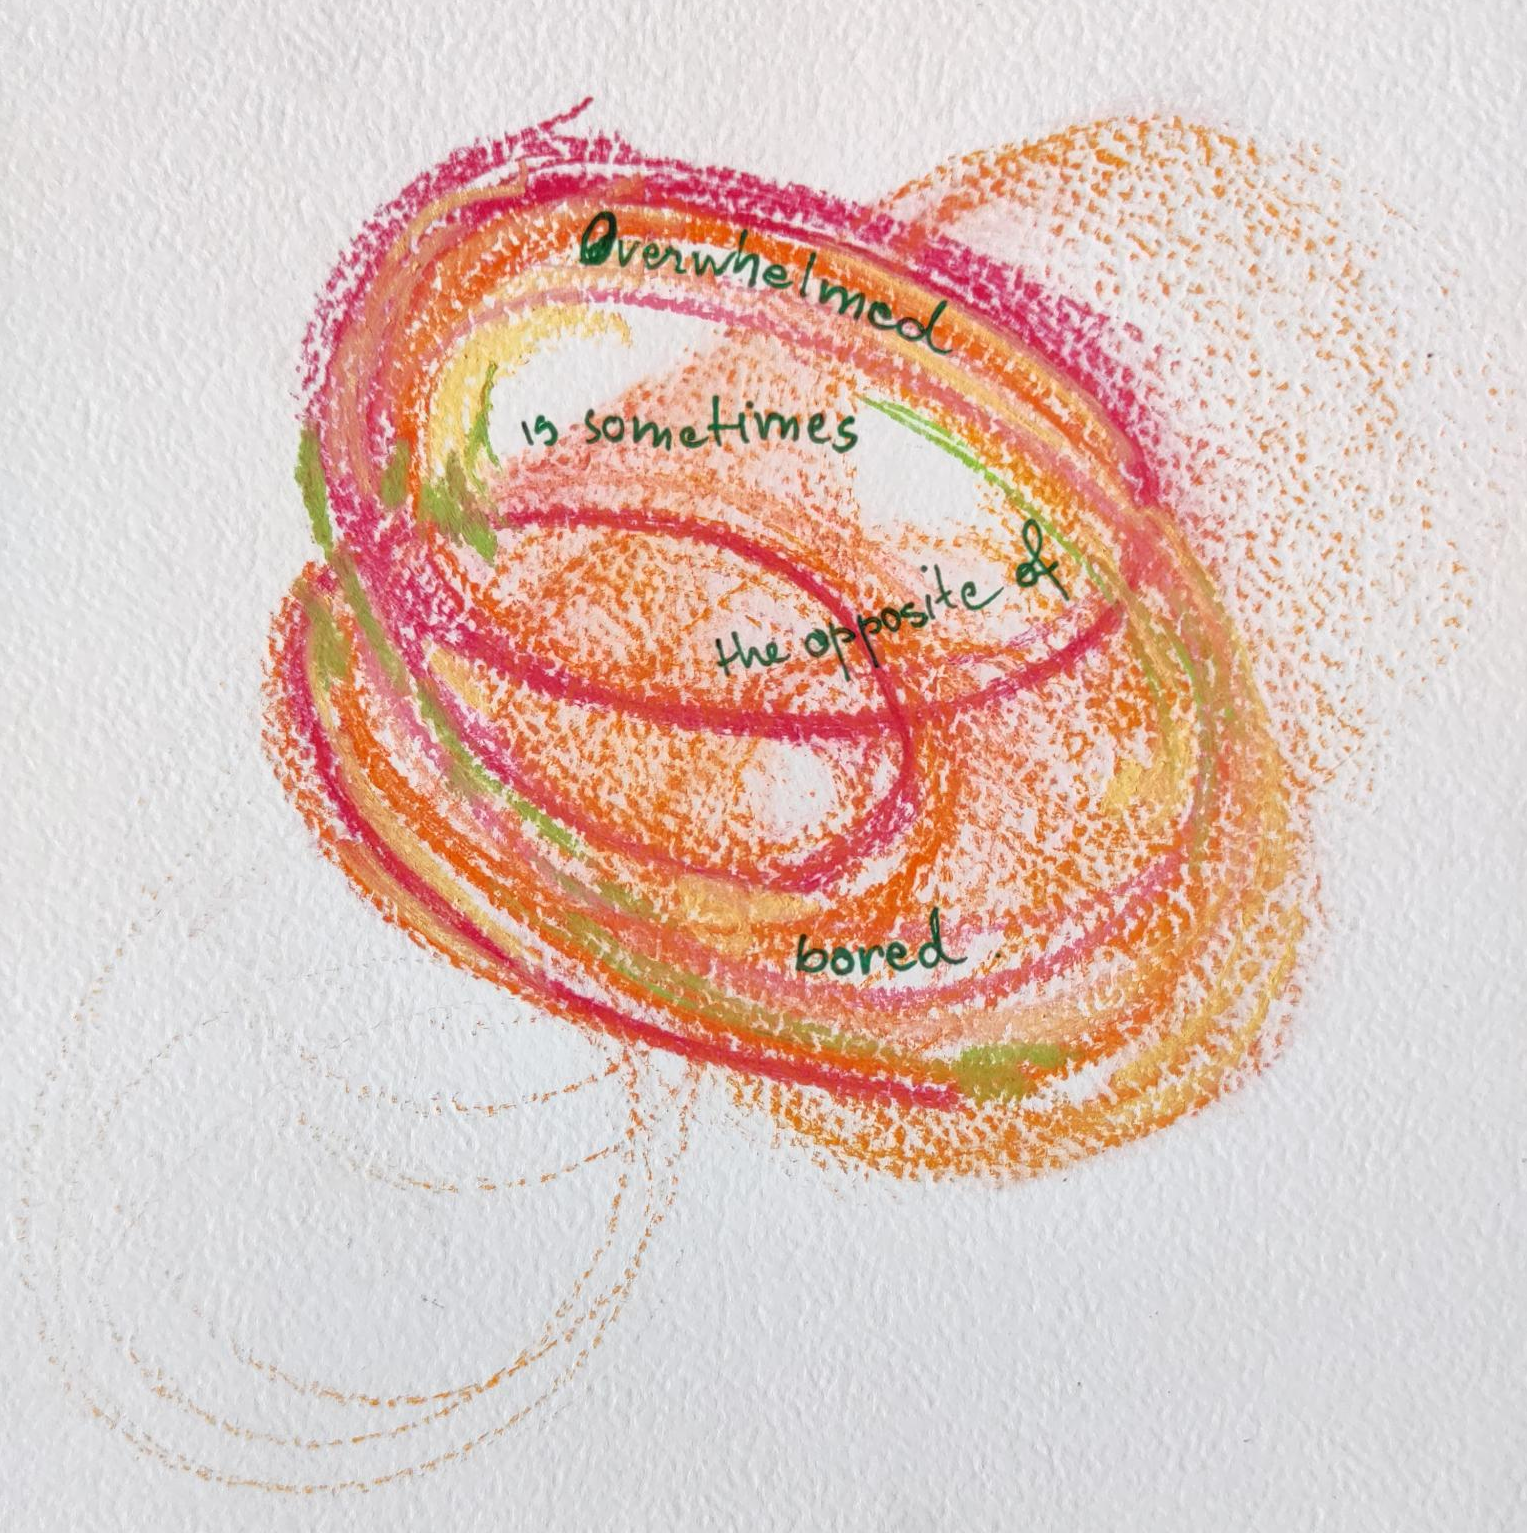 Overwhelmed
is sometimes
the opposite of
bored.